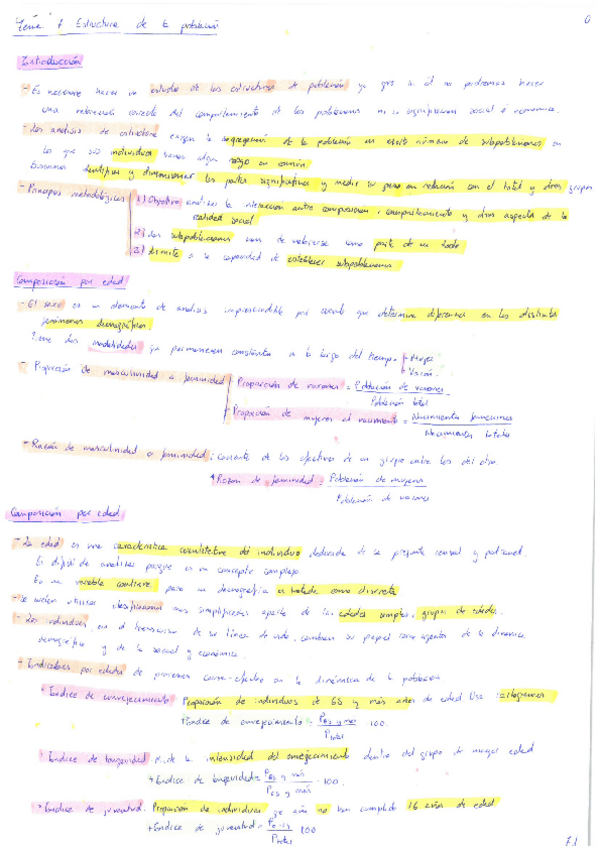 Tema 1 Estructura de la población
Introducción
- Es necesario hacer un estudio de las estructuras de población ya que sin él no podremos hacer
una referencia correcta del comportamiento de los problemas ni su significación social ó económica.
- Los análisis de estructura exigen la segregación de la población en cierto número de subpoblaciones en
las que sus individuos tienen algún rasgo en común.
Buscamos identificar y dimensionar las partes significativas y medir su peso en relación con el total y otros grupos
- Principios metodológicos 1) Objetivo: analizar la interacción entre composición, comportamiento y otros aspectos de la
realidad social
2) Las subpoblaciones han de referirse como parte de un todo
3) límite a la capacidad de establecer subpoblaciones
Composición por edad
- El sexo es un elemento de análisis imprescindible por cuanto que determina diferencias en los distintos
fenómenos demográficos.
Tiene dos modalidades que permanecen constantes a lo largo del tiempo - Mujer
- Varón
- Proporción de masculinidad o feminidad - Proporción de varones = Población de varones
Población total
- Proporción de mujeres al nacimiento = Nacimientos femeninos
Nacimientos totales
- Razón de masculinidad o feminidad: Cociente de los efectivos de un grupo entre los del otro.
* Razón de feminidad = Población de mujeres
Población de varones
Composición por edad
- La edad es una característica cuantitativa del individuo deducida de la pregunta censal y padronal
Es difícil de analizar porque es un concepto complejo.
Es una variable continua pero en demografía es tratada como discreta
- Se suelen utilizar clasificaciones más simplificadas aparte de las edades simples, grupos de edades.
- Los individuos, en el transcurso de su línea de vida, cambian su papel como agentes de la dinámica
demográfica y de la social y económica.
- Indicadores por edades de procesos causa-efecto en la dinámica de la población
* Índice de envejecimiento: Proporción de individuos de 65 y más años de edad. Usa
+ Índice de envejecimiento = P65 y más 100.
Ptotal
* Índice de longevidad: de la intensidad del envejecimiento dentro del grupo de mayor edad
+ Índice de longevidad = P85 y más · 100.
P65 y más
* Índice de juventud: Proporción de individuos que aún no han cumplido 16 años de edad
+ Índice de juventud = P0-15 100
Ptotal